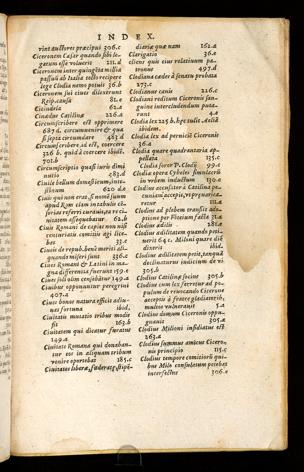 INDEX.
uint auctores præcipui 306.c
Ciceronem Cæsar quando sibi legatum esse voluerit 211.d
Ciceronem inter quingēta millia
passuū ab Italia toto recipere
lege Clodia nemo potuit 36.b
Ciceronem qui ciues dilexerunt
Reip. causa 81.c
Cicindela 62.a
Cinædus Catilina 226.a
Circunscribere est opprimere
687.d. circumuenire & qua
si septa circundare 483.d
Circunscribere id est, coercere
326 b. quid à coercere ibidē.
701.b
Circunscriptio quasi iuris diminutio 483.d
Ciuile bellum domesticum, intestinum 620 d.e
Ciuis qui non eras, si nomē suum
apud Rom
62.b
Ciues Romani de capite non nisi
centuriatis comitiis agi licebes 33.c
Ciueis de repub. benè meriti aliquando miseri sunt 336.c
Ciues Romani & Latini in magna differentia fuerunt 159.c
Ciues soli uim cœsibātur 149.a
Ciuibus oppugnantur peregrini
407.a
Ciues bonos natura efficit adiuuas fortuna ibid.
Ciuitatis mutatio tribus modis
fit 163.b
Ciuitatem qui dicatur furatus
149.a
Ciuitate Romana qui donabantur eos in aliquam tribum
venire oportebat 185.c
Ciuitates liberæ, fœderatę, stipēdiariæ quæ nam 162.a
Clarigatio 36.c
cliens quis eius relatiuum patronus 497.d
Clodiana cædes à senatu probata
273.c
Clodianus canis 226.c
Clodiani reditum Ciceronis sanguine intercludendum putarunt 4.a
Clodia lex 225 b. hpc tulit. Aelia
ibidem.
Clodia lex ad perniciē Ciceronis
36.a
Clodia quare quadrantaria appellata 135.c
Clodia soror P. Clodij 99.c
Clodia opera Cybeles simulacrū
in vrbem inductum 130.c
Clodius accusator à Catilina pecuniam accepit, vt præuaricaretur 111.a
Clodius ad plebem transit adoptione per Fonteium facta 31.a
Clodius ædilis 281.c
Clodius ædilitatem quando petiuerit 64 c. Miloni quare diē
dixerit ibid.
Clodius ædilitatem petit, tanquā
declinaturus iudicium de vi
305.b
Clodius Catilinæ socius 305.b
Clodius cum lex ferretur ad populum de reuocando Cicerone
accepsis à fratre gladiatorib.
multos vulnerauit 5.a
Clodius domum Ciceronis oppugnauit 305.a
Clodius Miloni insidiatus est
263.a
Clodius summus amicus Ciceronis principio 115.c
Clodius tempore comitiorū quibus Milo consulatum petebat
interfectus 306.e